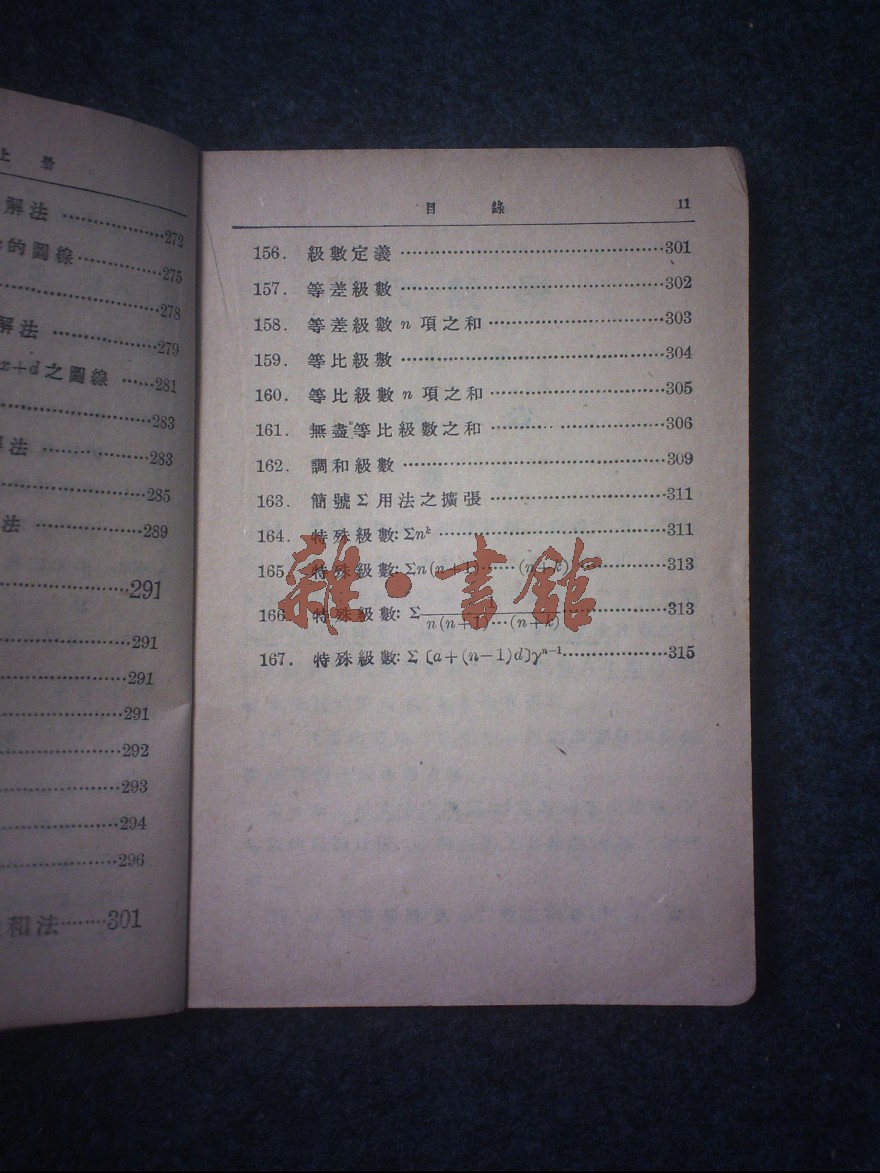 上 册
解法 ………………272
的圖線………………275
………………278
解法 ………………279
x+d之圖線 ……281
………………283
解法 ………………283
………………285
法 ………………289
………………291
………………291
………………291
………………291
………………292
………………293
………………294
………………296
和法………301
目 錄 11
156. 級數定義 ………………301
157. 等差級數 ………………302
158. 等差級數 n 項之和 ………………303
159. 等比級數 ………………304
160. 等比級數 n 項之和 ………………305
161. 無盡等比級數之和 ………………306
162. 調和級數 ………………309
163. 簡號 Σ 用法之擴張 ………………311
164. 特殊級數: Σnᵏ ………………311
165. 特殊級數: Σn(n+1)……(n+k) ………………313
166. 特殊級數: Σ 1/n(n+1)…(n+k) ………………313
167. 特殊級數: Σ〔a+(n−1)d〕γⁿ⁻¹ ………………315
雜·書館